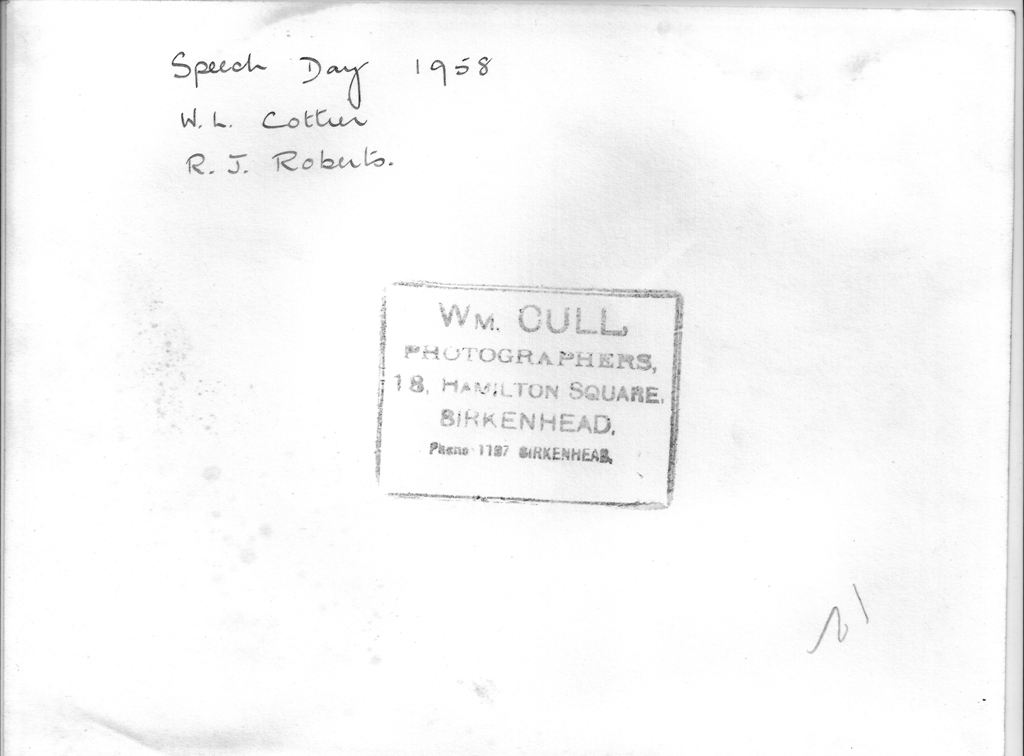 Speech Day 1958
W. L. Cottier
R. J. Roberts.
WM. CULL,
PHOTOGRAPHERS,
18, HAMILTON SQUARE,
BIRKENHEAD.
Phone 1197 BIRKENHEAD.